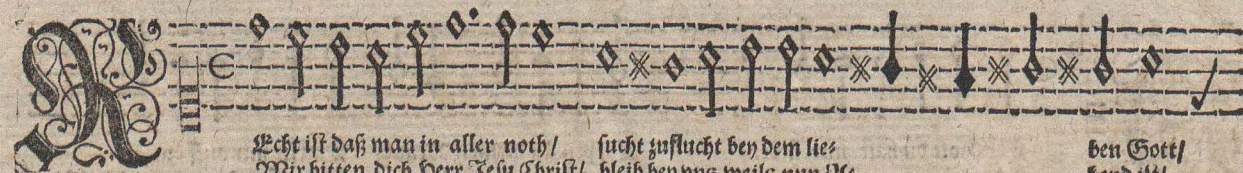 REcht ist daß man in aller noth/ sucht zuflucht bey dem lie⸗ ben Gott/
Wir bitten dich Herr Jesu Christ/ bleib bey vns weils nun A⸗ bend ist/